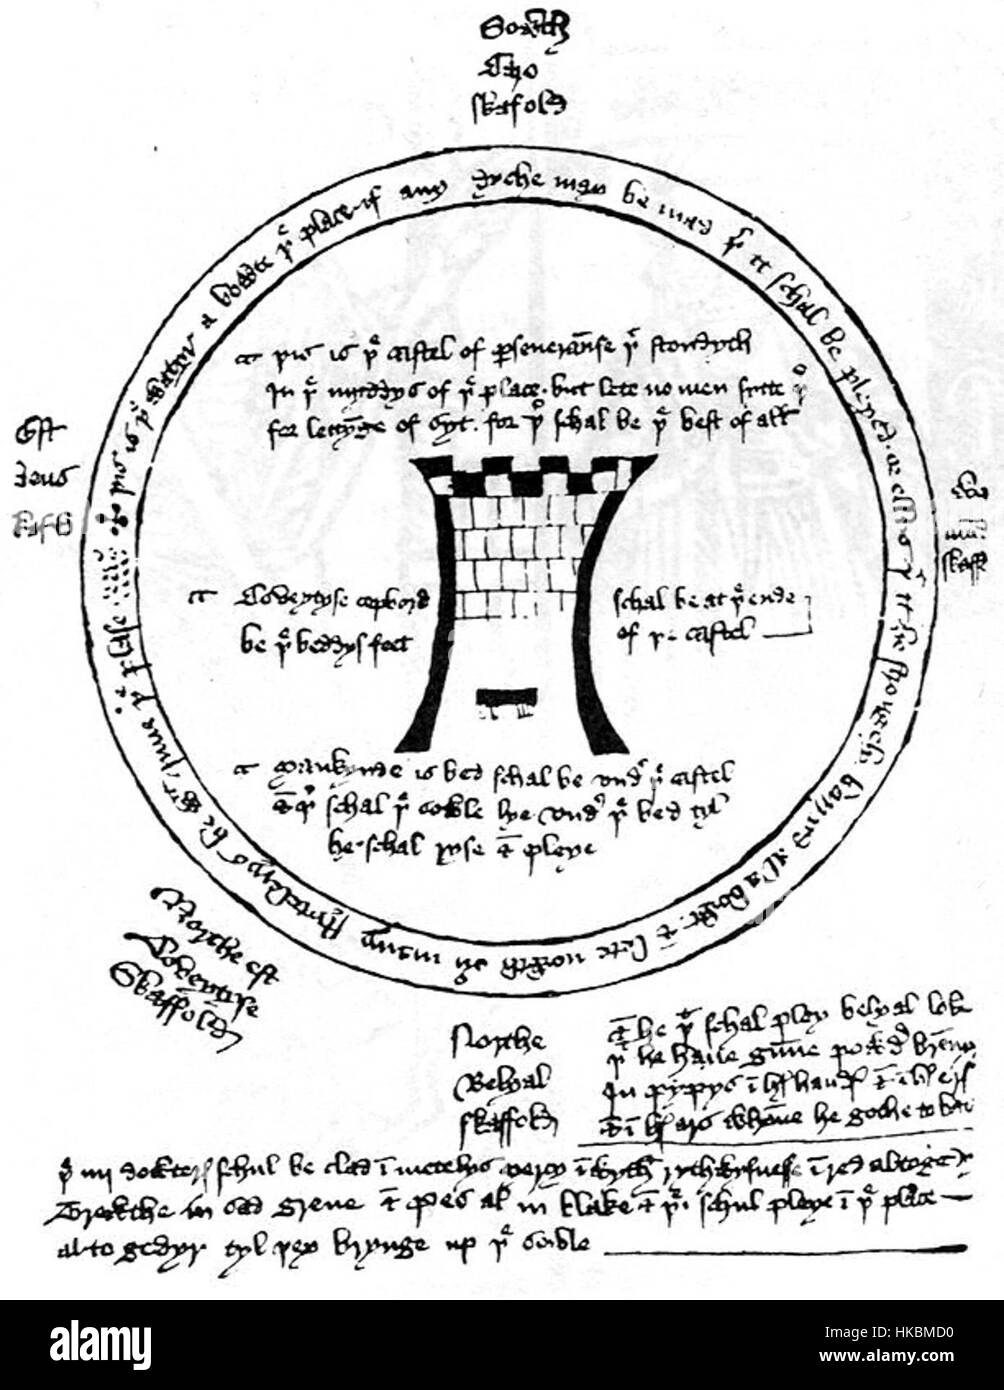 Sowth
Caro
skafold
þis is þe watyr a bowte þe place if any dyche may be mad þer it schal be pleyed or ellys þat it be strongely barryd al a bowt & lete nowth ouyr many stytelerys be wyth Inne þe plase
þis is þe castel of perseueraunse þat stondyth
In þe myddys of þe place. but lete no men sytte þer
for lettynge of syt. for þer schal be þe best of all
Est
deus
skafold
skaff
Coveytyse copbord
be þe beddys feet
schal be at þe ende
of þe castel
Mankynde is bed schal be vndyr þe castel
& þer schal þe sowle lye vndyr þe bed tyl
he schal ryse & pleye
Northe est
Coveytyse
Skaffold
Northe
Belyal
skaffold
& he þat schal pley belyal loke
þat he haue gunne powdyr brenny
In pypys in hys handys & in hys erys
& in hys ars whanne he gothe to bat
þe iiij dowterys schul be clad in mentelys Mercy in wyth rythwysnesse in red altogedyr
Trewthe in sad grene & Pes al in blake & þei schul pleye in þe place
altogedyr tyl þey brynge up þe sowle
alamy
Image ID: HKBMD0
www.alamy.com